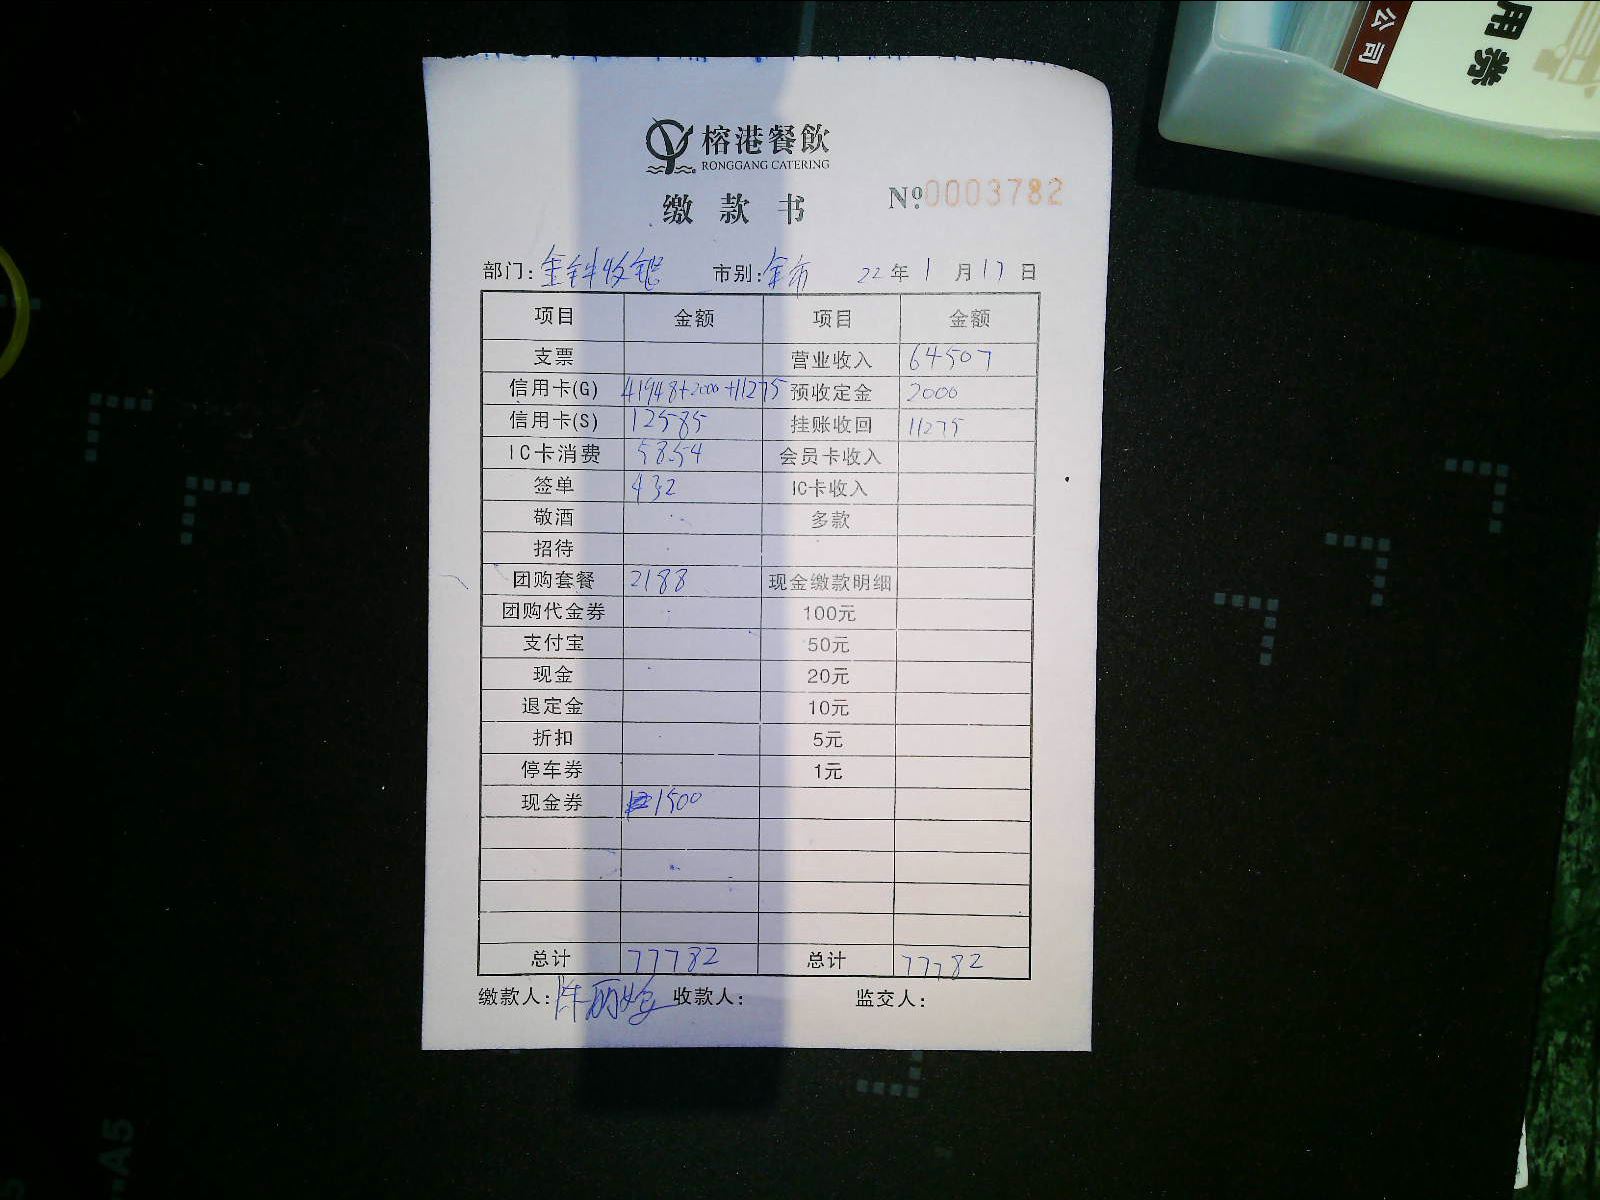 公司
用券
榕港餐飲
RONGGANG CATERING
缴款书 Nº.0003782
部门: 金钟收银 市别: 全市 22年1月17日
项目 金额 项目 金额
支票 营业收入 64507
信用卡(G) 41948+2000+11275 预收定金 2000
信用卡(S) 12585 挂账收回 11275
IC卡消费 5854 会员卡收入
签单 432 IC卡收入
敬酒 多款
招待
团购套餐 2188 现金缴款明细
团购代金券 100元
支付宝 50元
现金 20元
退定金 10元
折扣 5元
停车券 1元
现金券 1500
总计 77782 总计 77782
缴款人: 收款人: 监交人:
-A5